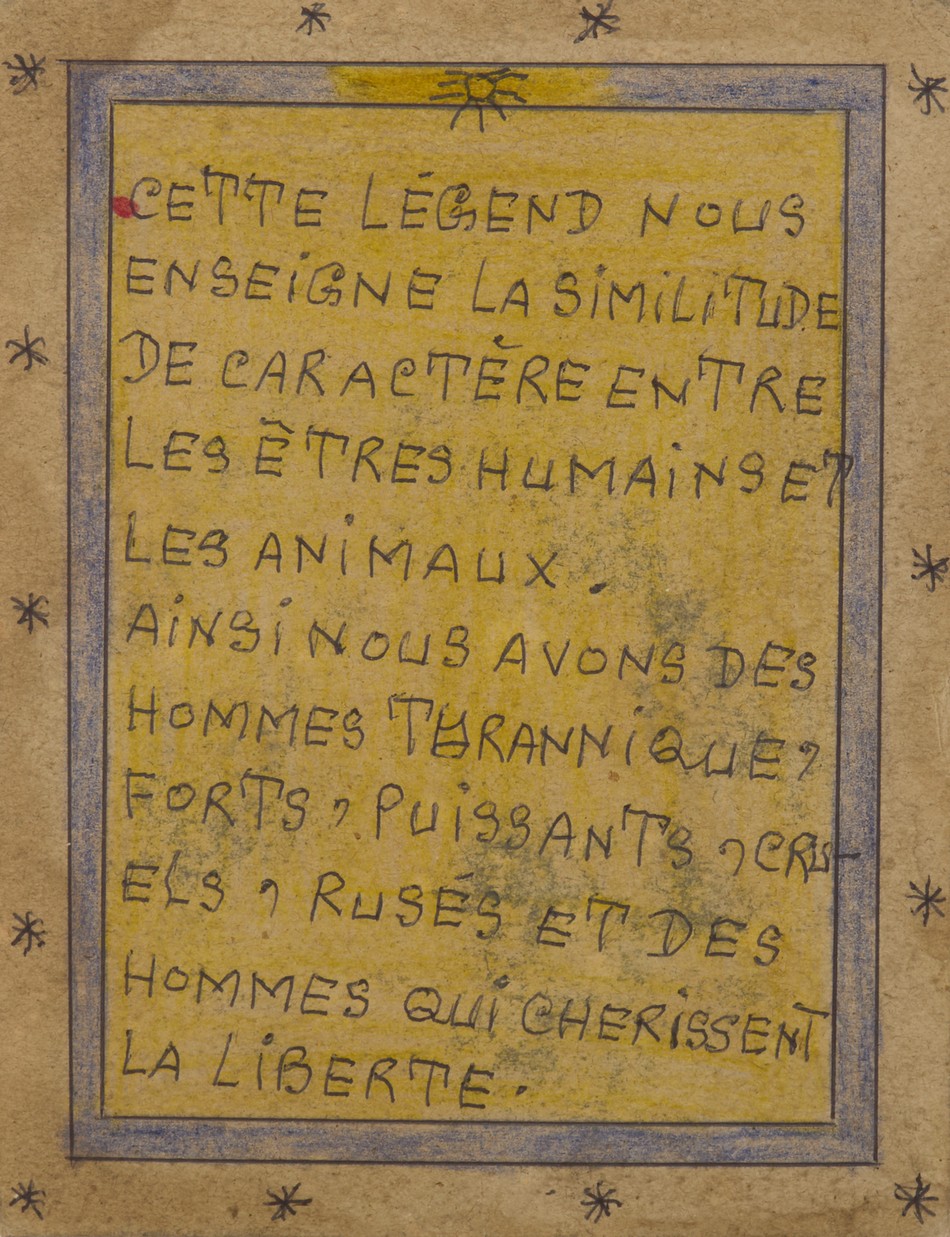 CETTE LÉGEND NOUS
ENSEiGNE LA SiMiLiTUDE
DE CARACTÈRE ENTRE
LES ÊTRES HUMAiNS ET
LES ANiMAUX.
AiNSi NOUS AVONS DES
HOMMES TYRANNiQUE,
FORTS, PUiSSANTS, CRU-
ELS, RUSÉS ET DES
HOMMES QUi CHERiSSENT
LA LiBERTE.